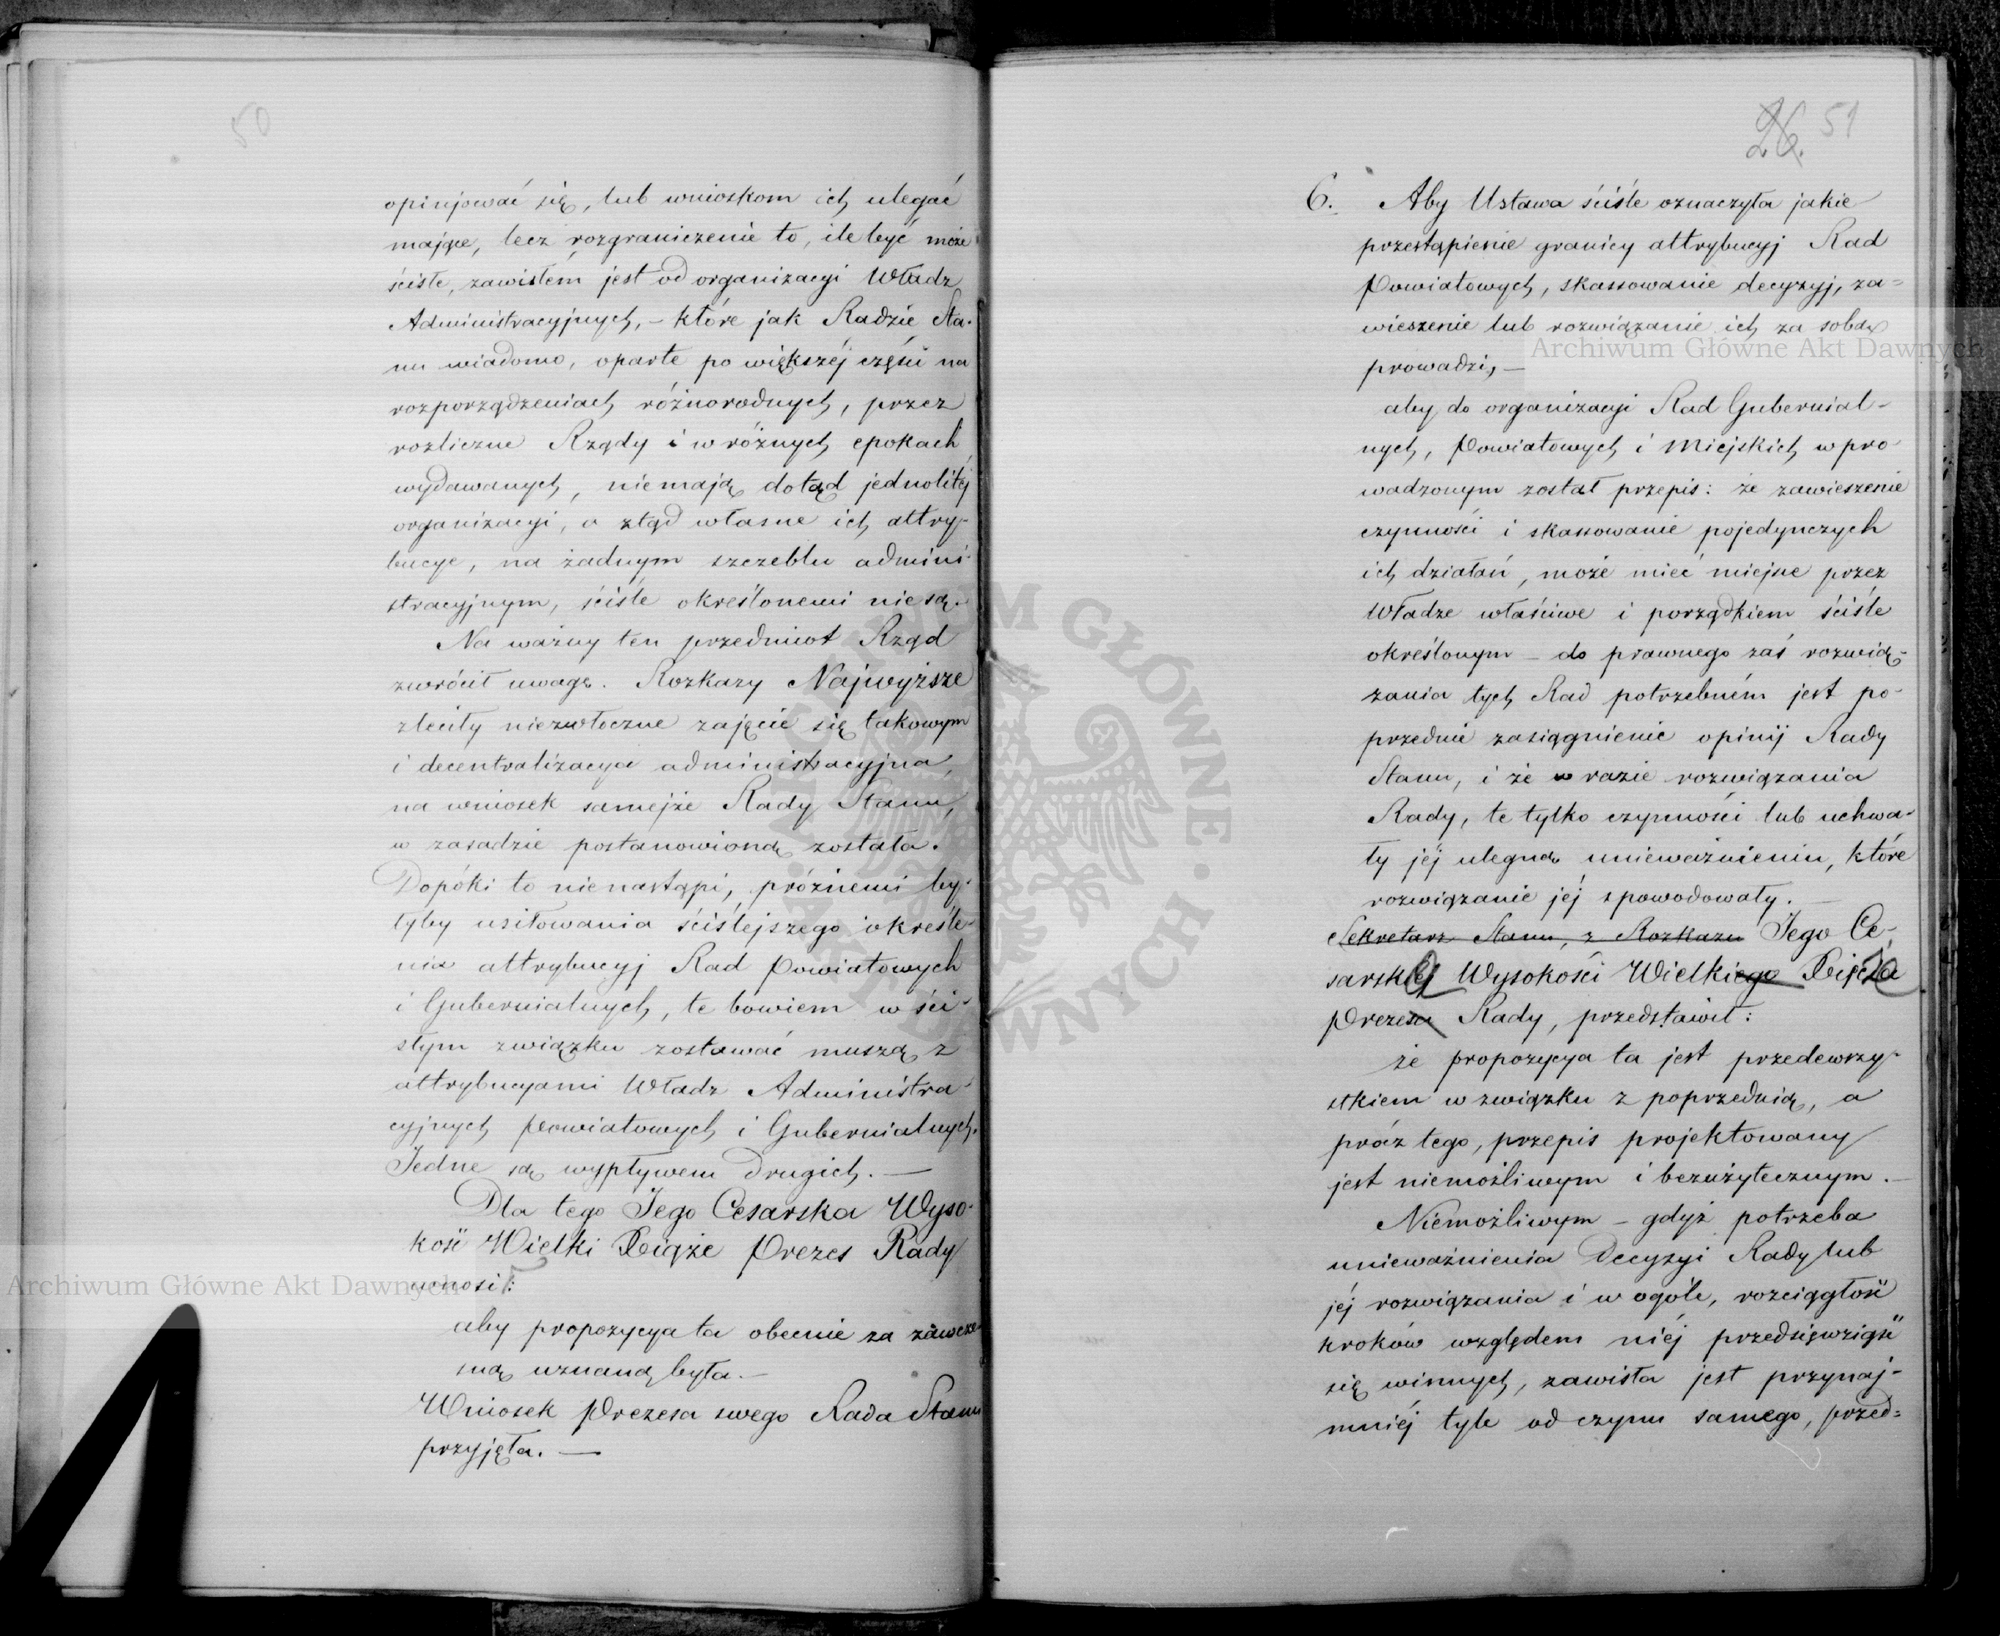 50
opinjować się, lub wnioskom ich ulegać
mające, lecz rozgraniczenie to, ile być może
ściśłe, zawisłem jest od organizacyi Władz
Administracyjnych, – które jak Radzie Sta-
nu wiadomo, oparte po większéj części na
rozporządzeniach różnorodnych, przez
rozliczne Rządy i w różnych epokach
wydawanych, niemają dotąd jednolitéj
organizacyi, a ztąd własne ich attry-
bucye, na żadnym szczeblu admini-
stracyjnym, ściśle określonemi nie są.
Na ważny ten przedmiot Rząd
zwrócił uwagę. Rozkazy Najwyższe
zleciły niezwłoczne zajęcie się takowym
i decentralizacya administracyjna,
na wniosek samejże Rady Stanu,
w zasadzie postanowioną została.
Dopóki to nienastąpi, próżnemi by-
łyby usiłowania ściślejszego określe-
nia attrybucyj Rad Powiatowych
i Gubernialnych, te bowiem w ści-
słym związku zostawać muszą z
attrybucyami Władz Administra-
cyjnych Powiatowych i Gubernialnych.
Jedne są wypływem drugich. —
Dla tego Jego Cesarska Wyso-
kość Wielki Xiąże Prezes Rady
wnosi:
aby propozycya ta obecnie za zawcze
sną uznaną była. –
Wniosek Prezesa swego Rada Stanu
przyjęła. —
26. 51
6. Aby Ustawa ściśle oznaczyła jakie
przestąpienie granicy attrybucyj Rad
Powiatowych, skassowanie decyzyj, za-
wieszenie lub rozwiązanie ich za sobą
prowadzi, —
aby do organizacyi Rad Gubernial-
nych, Powiatowych i Miejskich wpro-
wadzonym został przepis: że zawieszenie
czynności i skassowanie pojedynczych
ich działań, może mieć miejsce przez
Władze właściwe i porządkiem ściśle
określonym – do prawnego zaś rozwią-
zania tych Rad potrzebném jest po-
przednie zasiągnienie opinij Rady
Stanu, i że w razie rozwiązania
Rady, te tylko czynności lub uchwa-
ły jéj ulegną unieważnieniu, które
rozwiązanie jéj spowodowały. —
Sekretarz Stanu, z Rozkazu Jego Ce-
sarskiej Wysokości Wielkiego Xięcia
Prezesa Rady, przedstawił:
że propozycya ta jest przedewszy-
stkiem w związku z poprzednią, a
prócz tego, przepis projektowany
jest niemożliwym i bezużytecznym. —
Niemożliwym – gdyż potrzeba
unieważnienia Decyzyi Rady lub
jéj rozwiązania i w ogóle, rozciągłość
kroków względem niéj przedsięwziąść
się winnych, zawisła jest przynaj-
mniéj tyle od czynu samego, przed-
Archiwum Główne Akt Dawnych
Archiwum Główne Akt Dawnych
ARCHIWUM GŁÓWNE AKT DAWNYCH